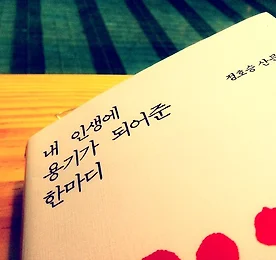 내 인생에
용기가 되어준
한마디
정호승 산문